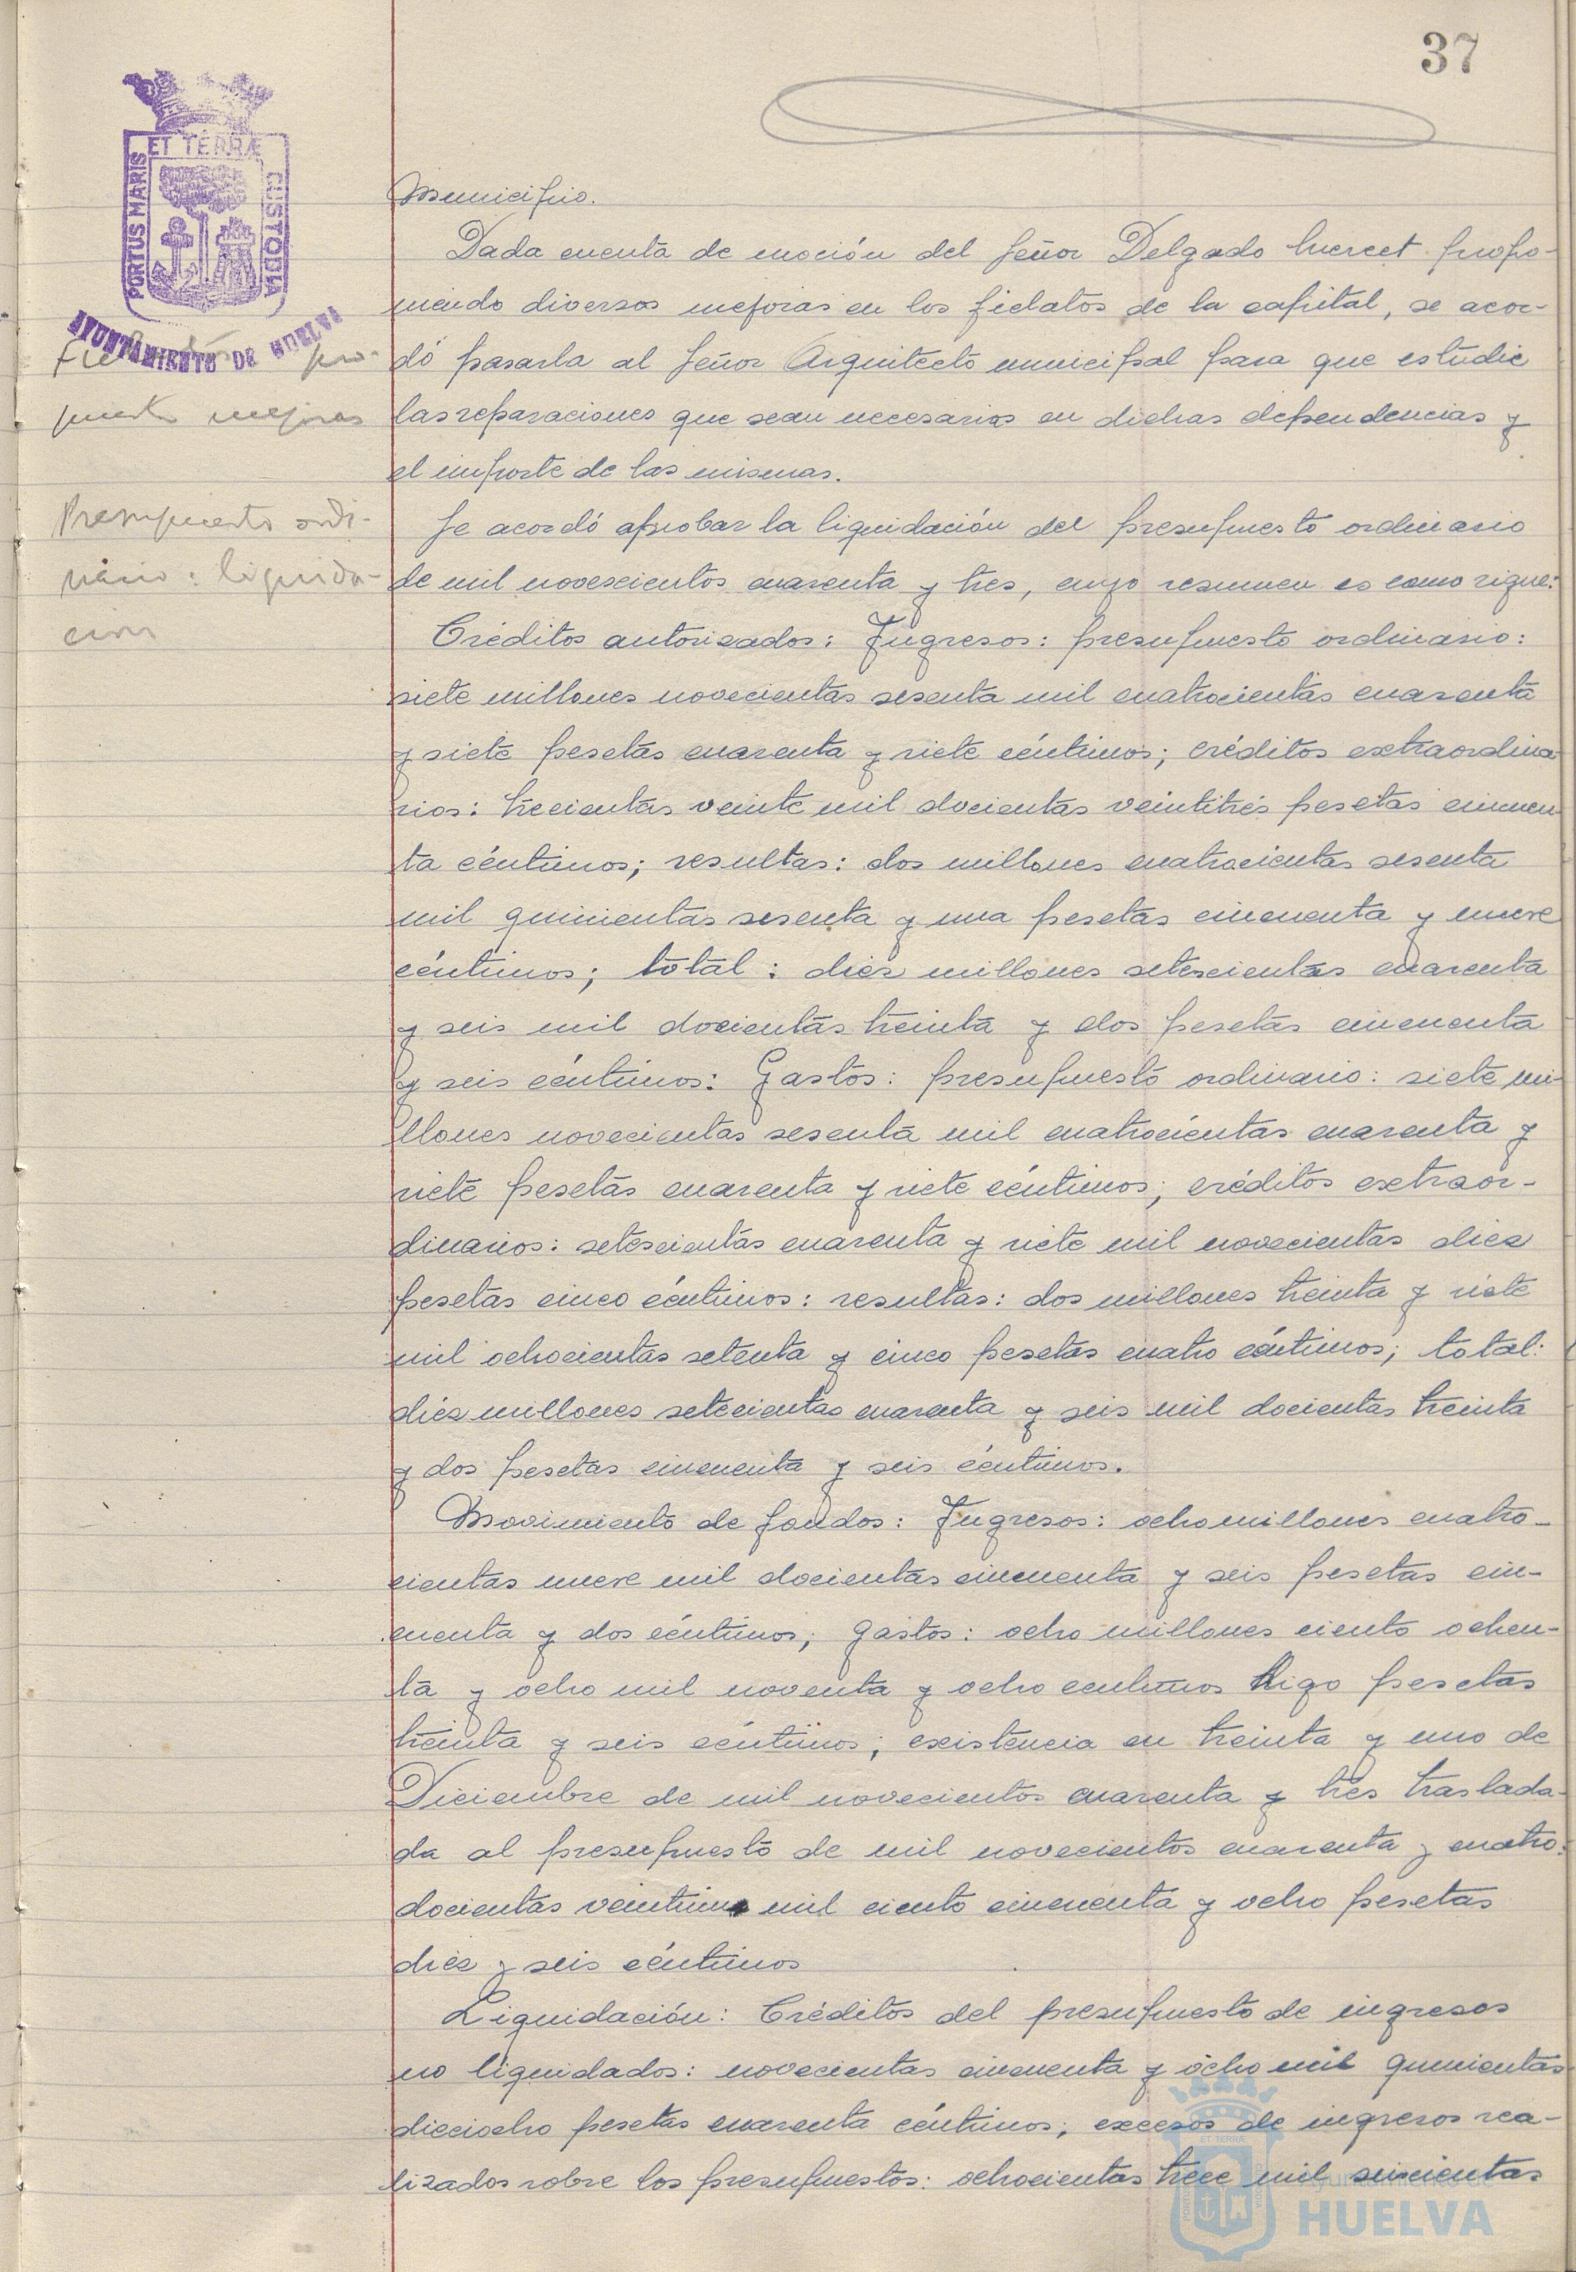 37
ET TERRÆ
PORTUS MARIS
CUSTODIA
AYUNTAMIENTO DE HUELVA
Municipio.
Dada cuenta de moción del Señor Delgado propo-
niendo diversas mejoras en los fielatos de la capital, se acor-
pro-
dó pasarla al Señor Arquitecto municipal para que estudie
puesta mejoras
las reparaciones que sean necesarias en dichas dependencias y
el importe de las mismas.
Presupuesto ordi-
nario: liquida-
cion
Se acordó aprobar la liquidación del presupuesto ordinario
de mil novescientos cuarenta y tres, cuyo resumen es como sigue:
Créditos autorizados: Ingresos: presupuesto ordinario:
siete millones novecientas sesenta mil cuatrocientas cuarenta
y siete pesetas cuarenta y siete céntimos; créditos extraordina
rios: trecientas veinte mil docientas veintitrés pesetas cincuen
ta céntimos; resultas: dos millones cuatrocientas sesenta
mil quinientas sesenta y una pesetas cincuenta y nueve
céntimos; total: diez millones setescientas cuarenta
y seis mil docientas treinta y dos pesetas cincuenta
y seis céntimos: Gastos: presupuesto ordinario: siete mi-
llones novecientas sesenta mil cuatrocientas cuarenta y
siete pesetas cuarenta y siete céntimos; créditos extraor-
dinarios: setescientas cuarenta y siete mil novecientas diez
pesetas cinco céntimos: resultas: dos millones treinta y siete
mil ochocientas setenta y cinco pesetas cuatro céntimos; total:
diez millones setecientas cuarenta y seis mil docientas treinta
y dos pesetas cincuenta y seis céntimos.
Movimiento de fondos: Ingresos: ocho millones cuatro-
cientas nueve mil docientas cincuenta y seis pesetas cin-
cuenta y dos céntimos; gastos: ocho millones ciento ochen-
ta y ocho mil noventa y ocho centimos digo pesetas
treinta y seis céntimos; existencia en treinta y uno de
Diciembre de mil novecientos cuarenta y tres traslada-
da al presupuesto de mil novecientos cuarenta y cuatro:
docientas veintiuna mil ciento cincuenta y ocho pesetas
diez y seis céntimos
Liquidación: Créditos del presupuesto de ingresos
no liquidados: novecientas cincuenta y ocho mil quinientas
dieciocho pesetas cuarenta céntimos; excesos de ingresos rea-
lizados sobre los presupuestos: ochocientas trece mil seiscientas
Ayuntamiento de
HUELVA